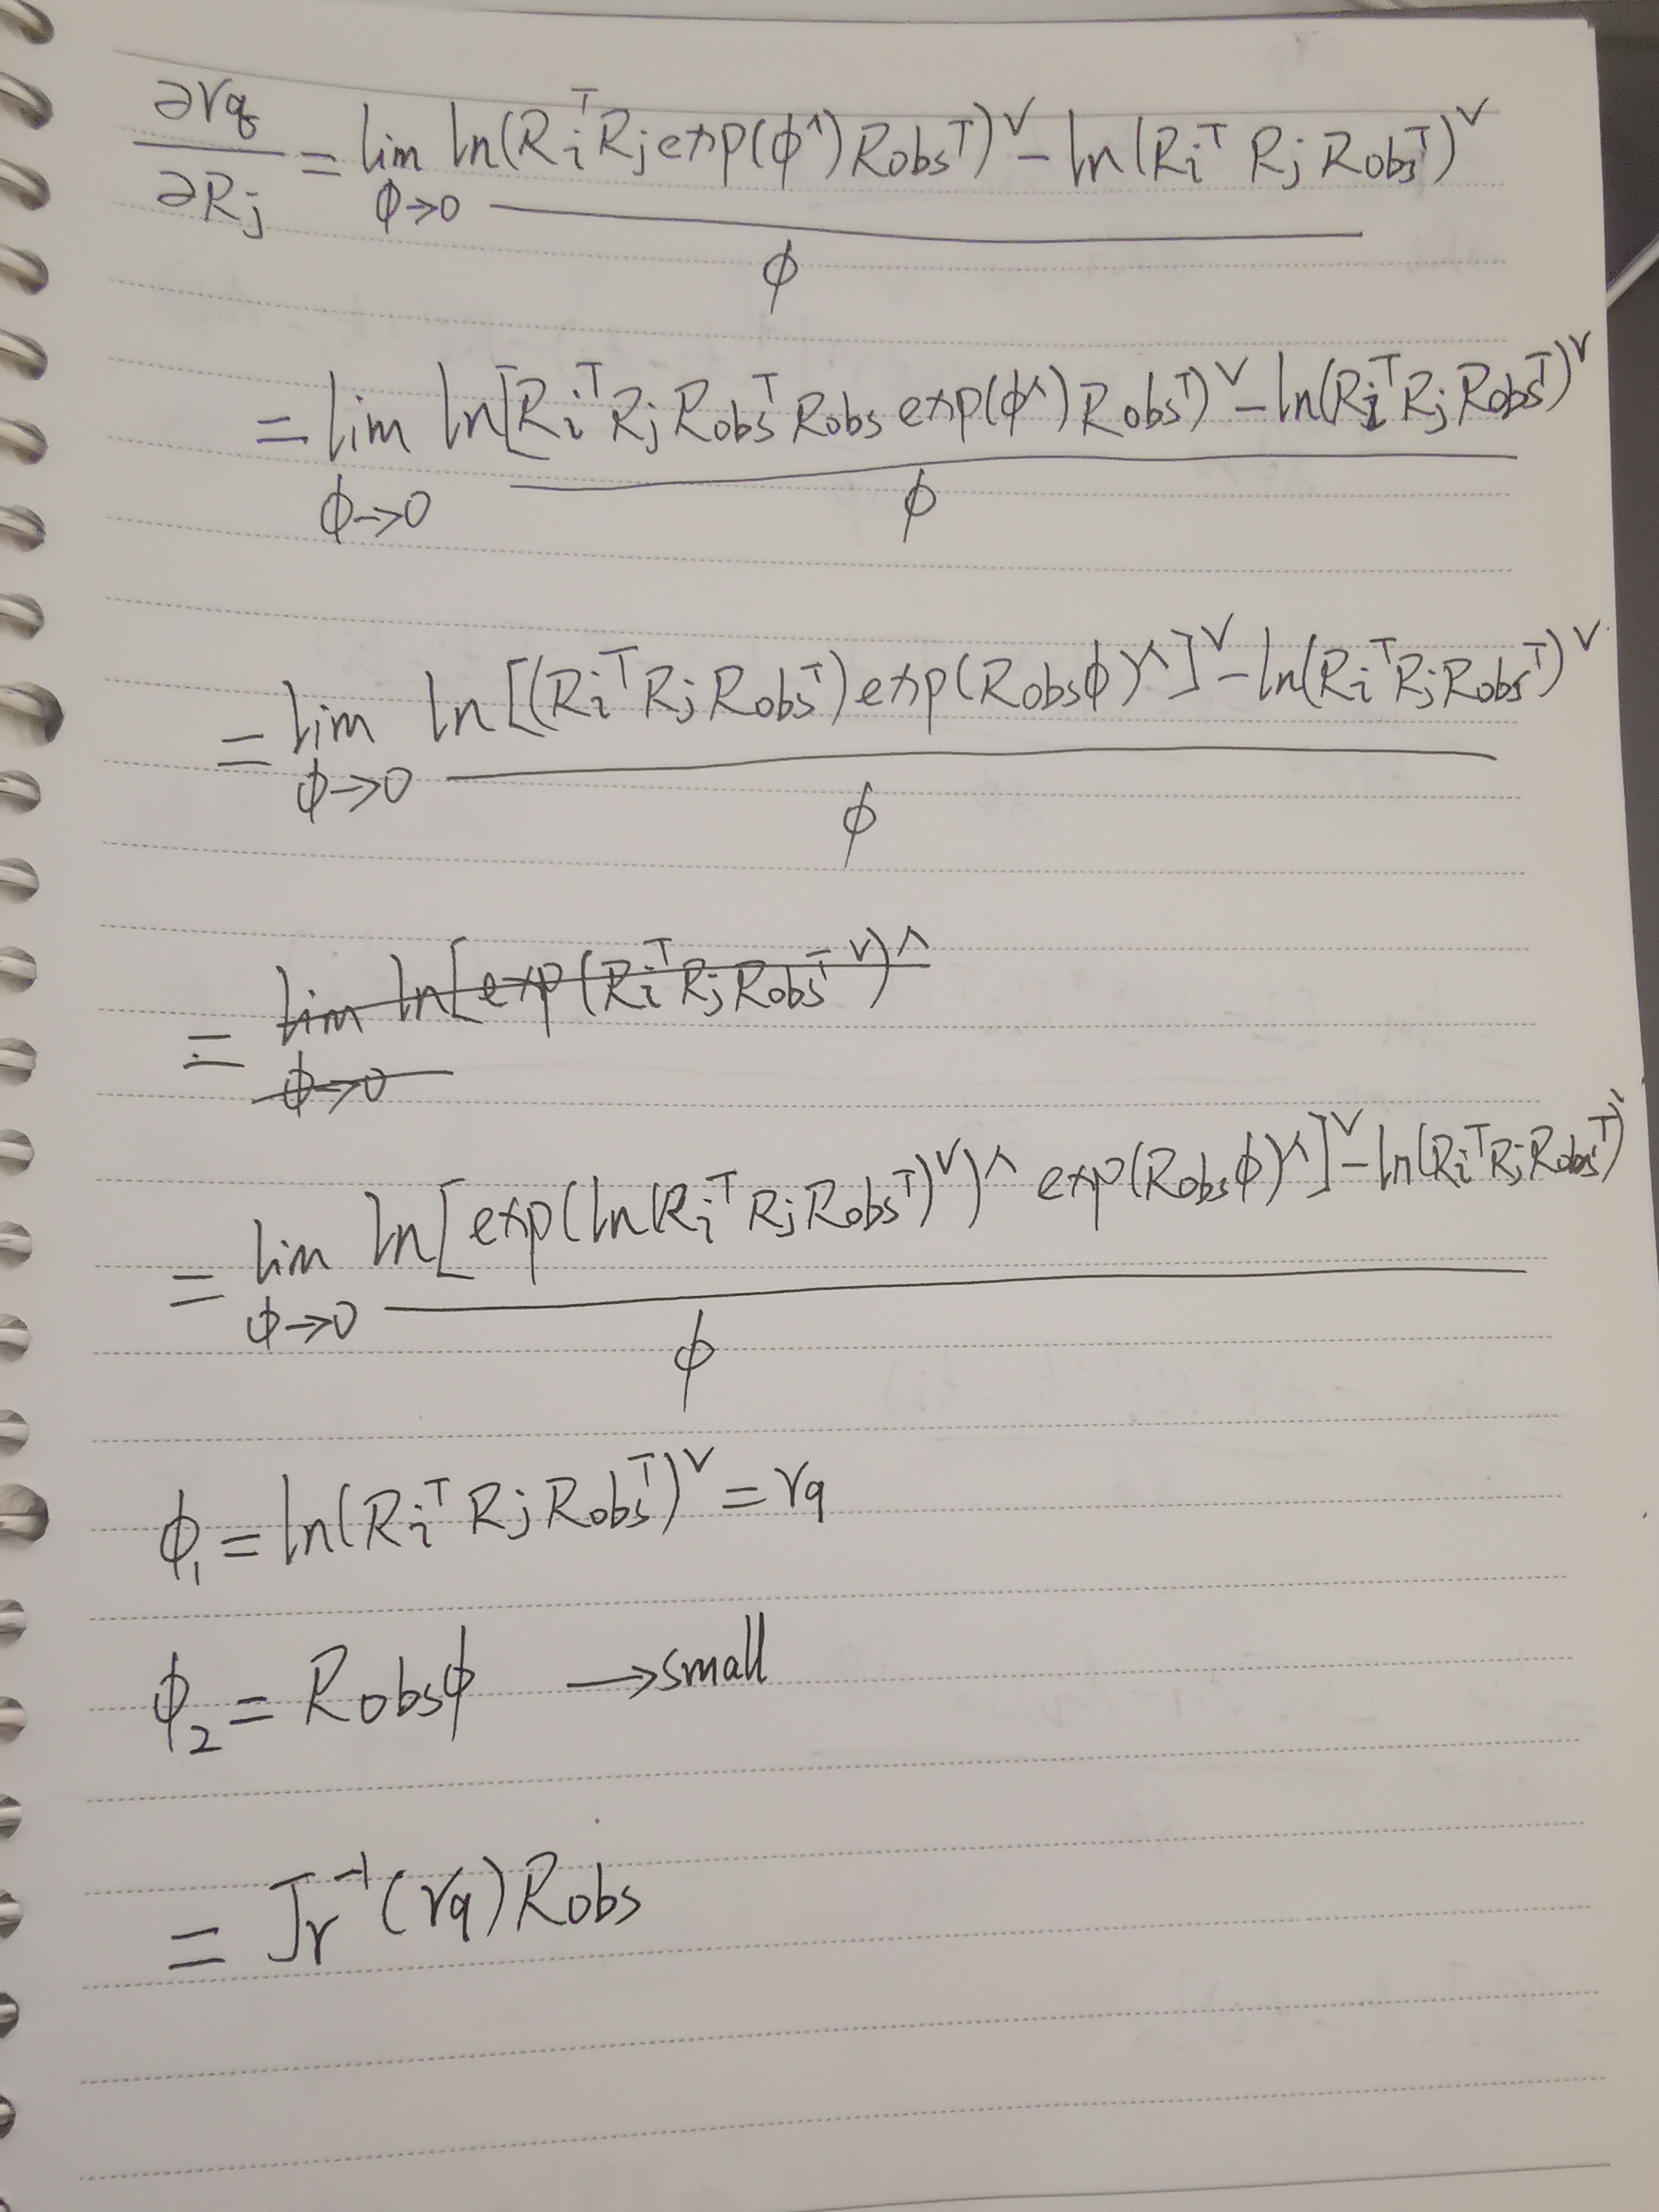 ∂rq/∂Rj = lim ϕ→0 [ln(Ri^T Rj exp(ϕ^) Robs^T)^∨ − ln(Ri^T Rj Robs^T)^∨] / ϕ
= lim ϕ→0 [ln[Ri^T Rj Robs^T Robs exp(ϕ^) Robs^T)^∨ − ln(Ri^T Rj Robs^T)^∨] / ϕ
= lim ϕ→0 [ln[(Ri^T Rj Robs^T) exp(Robs ϕ)^]^∨ − ln(Ri^T Rj Robs^T)^∨] / ϕ
= lim ϕ→0 ln[exp(Ri^T Rj Robs^T ^∨)^
= lim ϕ→0 [ln[exp(ln(Ri^T Rj Robs^T)^∨)^ exp(Robs ϕ)^]^∨ − ln(Ri^T Rj Robs^T)^∨] / ϕ
ϕ₁ = ln(Ri^T Rj Robs^T)^∨ = rq
ϕ₂ = Robs ϕ → small
= Jr^-1 (rq) Robs